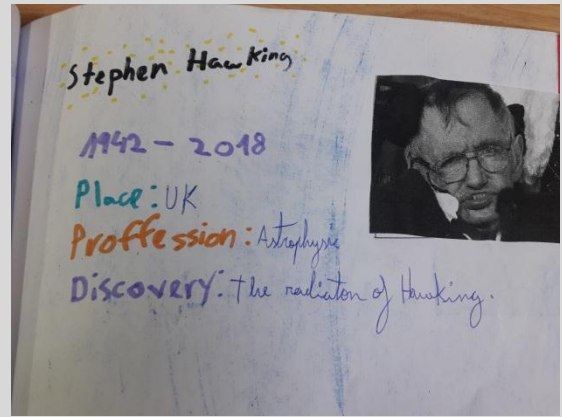 Stephen Hawking
1942 - 2018
Place: UK
Proffession: Astrophysic
Discovery: the radiaton of Hawking.